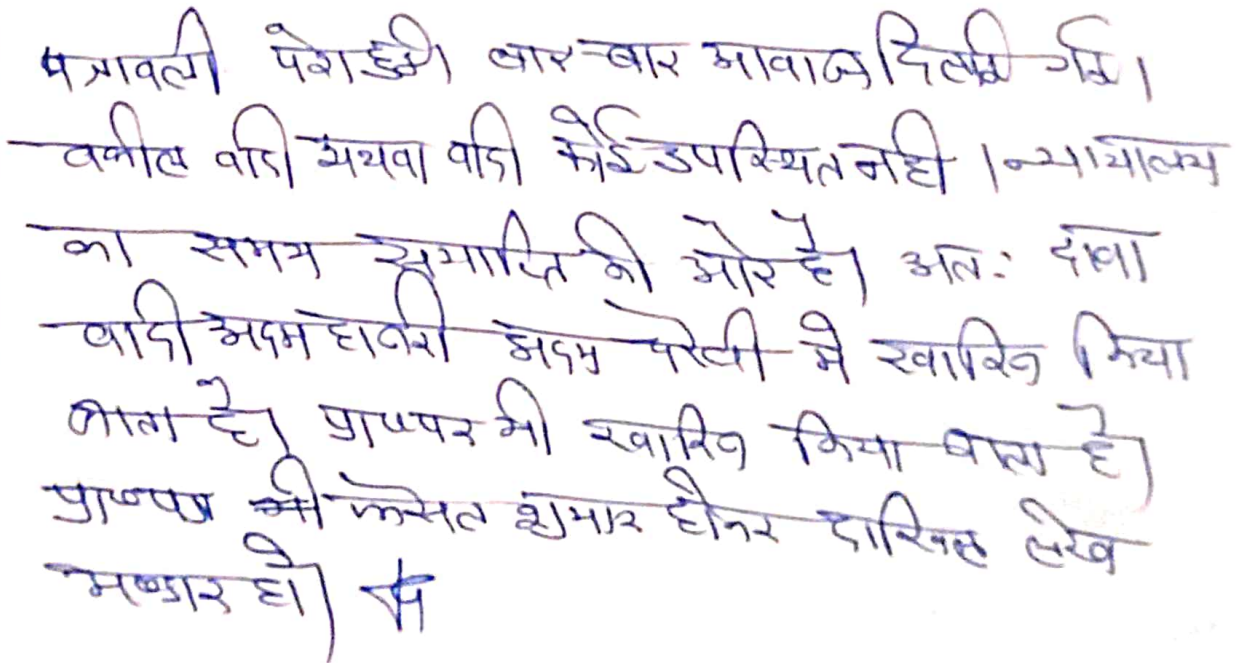 पत्रावली पेश हुई। बार-बार आवाज दिलाई गई।
वकील वादी अथवा वादी कोई उपस्थित नही। न्यायालय
का समय समाप्ति की ओर है। अतः दावा
वादी अदम हाजरी अदम पेरवी मे खारिज किया
जाता है। प्रा०पत्र भी खारिज किया जाता है।
प्रा०पत्र भी फेसल शुमार होकर दाखिल लेख
भण्डार हो।